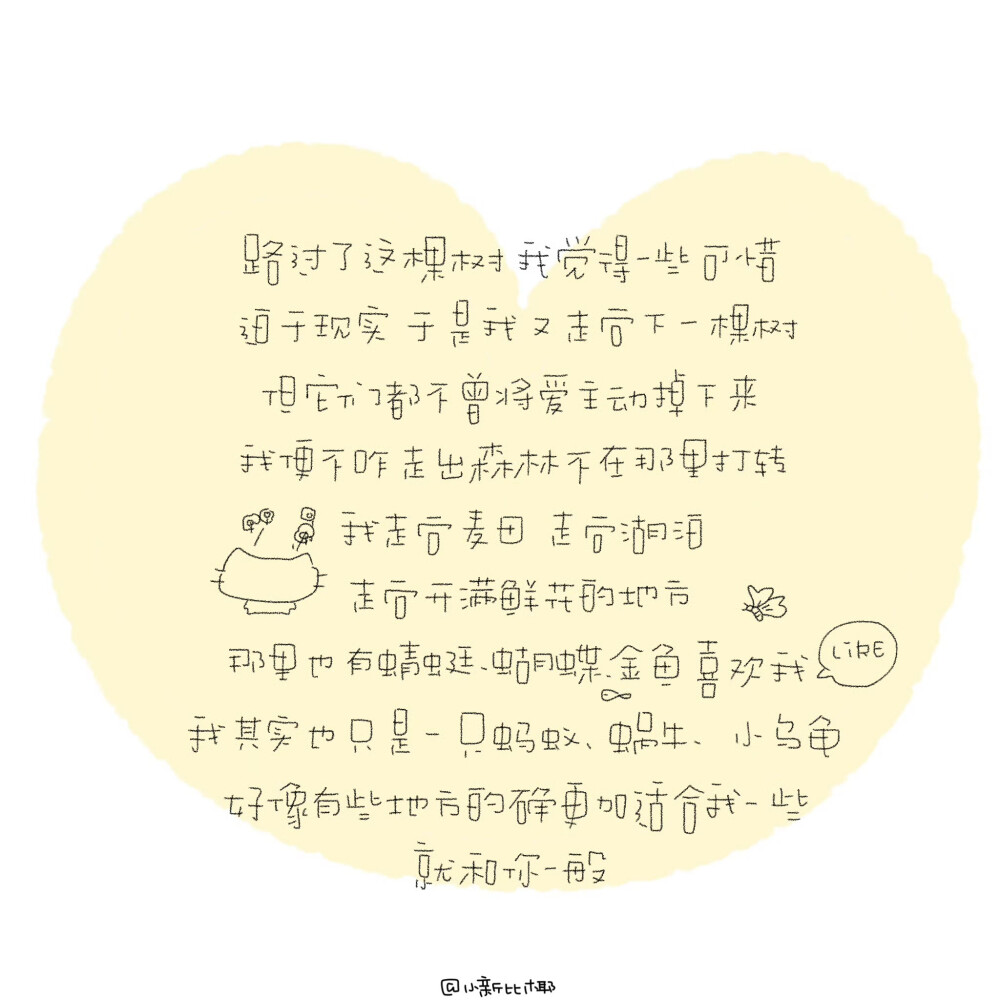 路过了这棵树 我觉得一些可惜
迫于现实 于是我又走向下一棵树
但它们都不曾将爱主动掉下来
我便不咋走出森林不在那里打转
我走向麦田 走向湖泊
走向开满鲜花的地方
那里也有蜻蜓、蝴蝶、金鱼喜欢我
LIKE
我其实也只是一只蚂蚁、蜗牛、小乌龟
好像有些地方的确更加适合我一些
就和你一般
@小新比椰